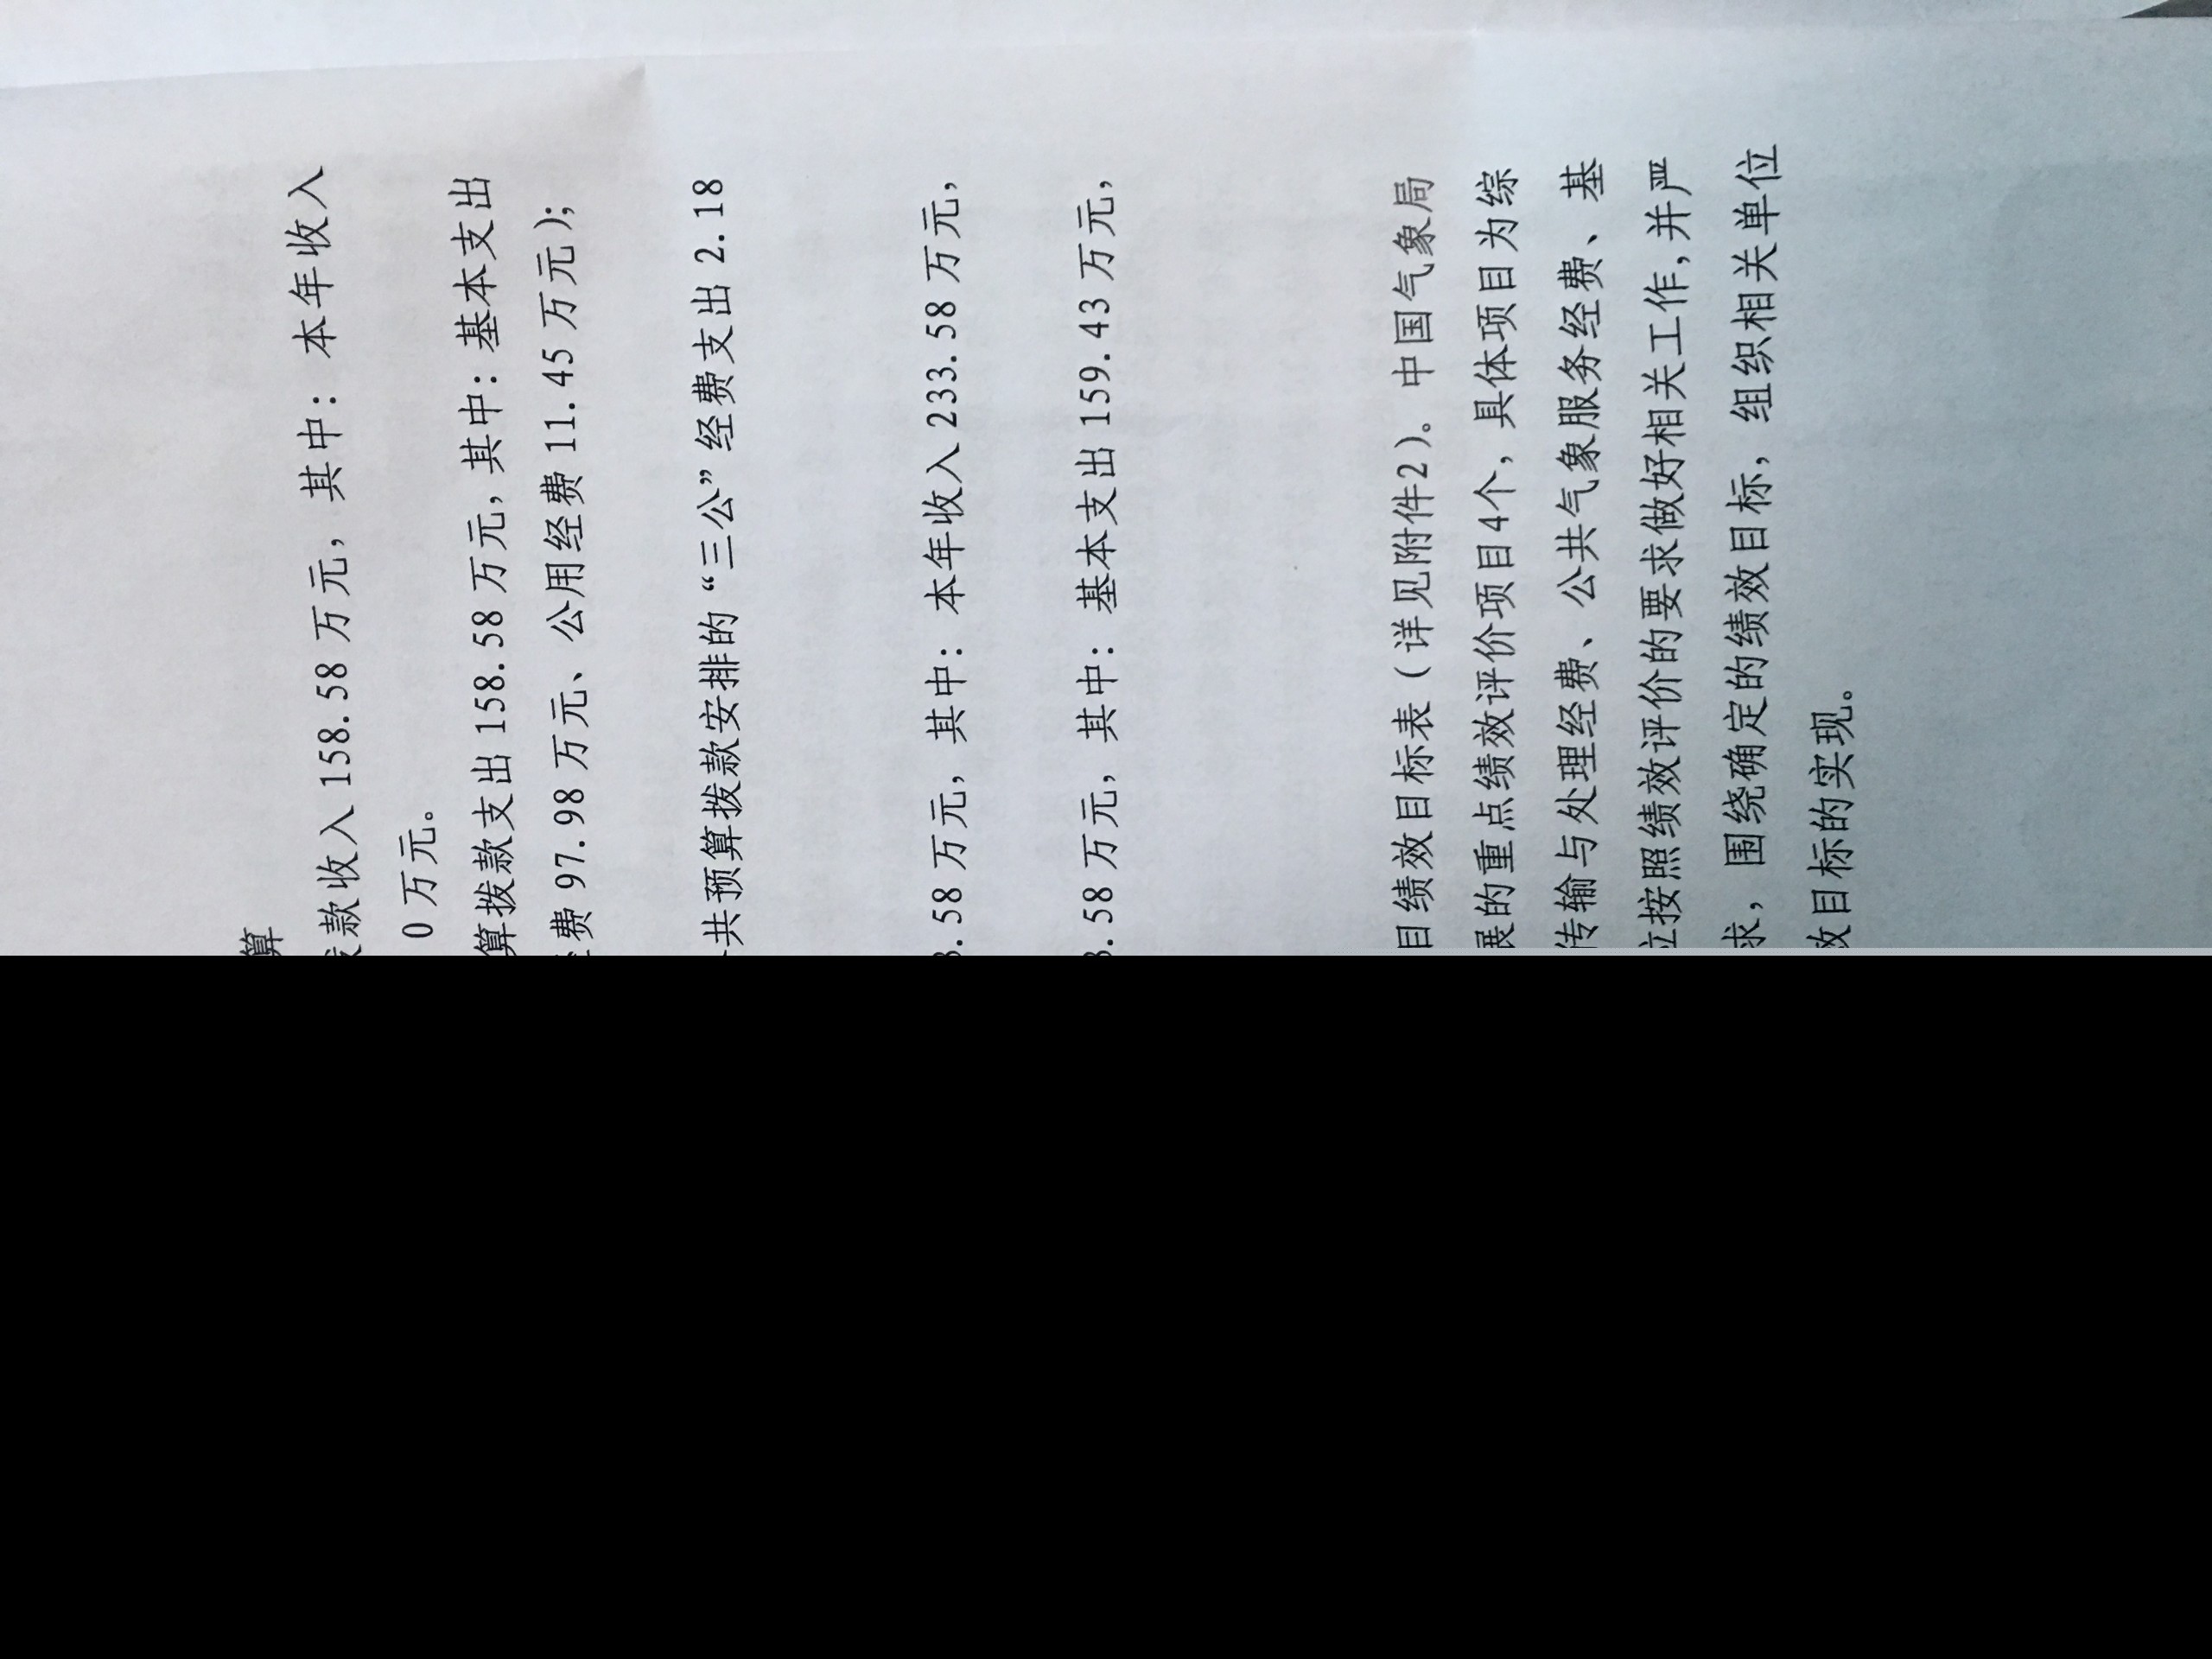 算
款收入 158.58 万元，其中：本年收入
0 万元。
算拨款支出 158.58 万元，其中：基本支出
费 97.98 万元、公用经费 11.45 万元）；
共预算拨款安排的“三公”经费支出 2.18
.58 万元，其中：本年收入 233.58 万元，
.58 万元，其中：基本支出 159.43 万元，
目绩效目标表（详见附件2）。中国气象局
展的重点绩效评价项目4个，具体项目为综
传输与处理经费、公共气象服务经费、基
按照绩效评价的要求做好相关工作，并严
求，围绕确定的绩效目标，组织相关单位
效目标的实现。